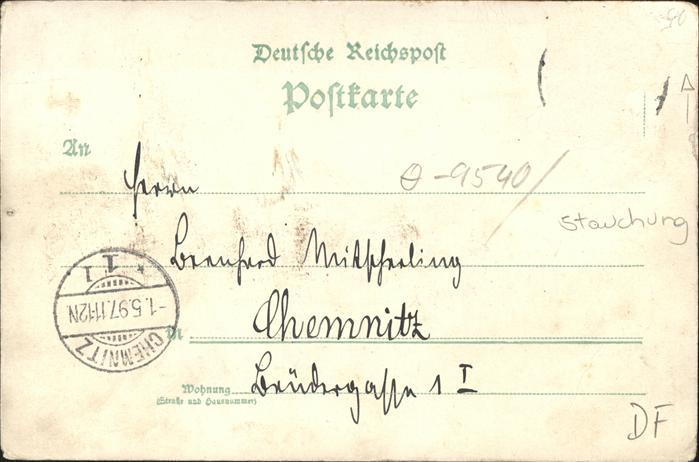 Deutsche Reichspost
Postkarte
An
Herrn
O-9540/
Stauchung
Bernhard Mitscherling
1.
-1.5.97.11-12N
CHEMNITZ
in
Chemnitz
Wohnung
(Straße und Hausnummer)
Brüdergasse 1 I
DF